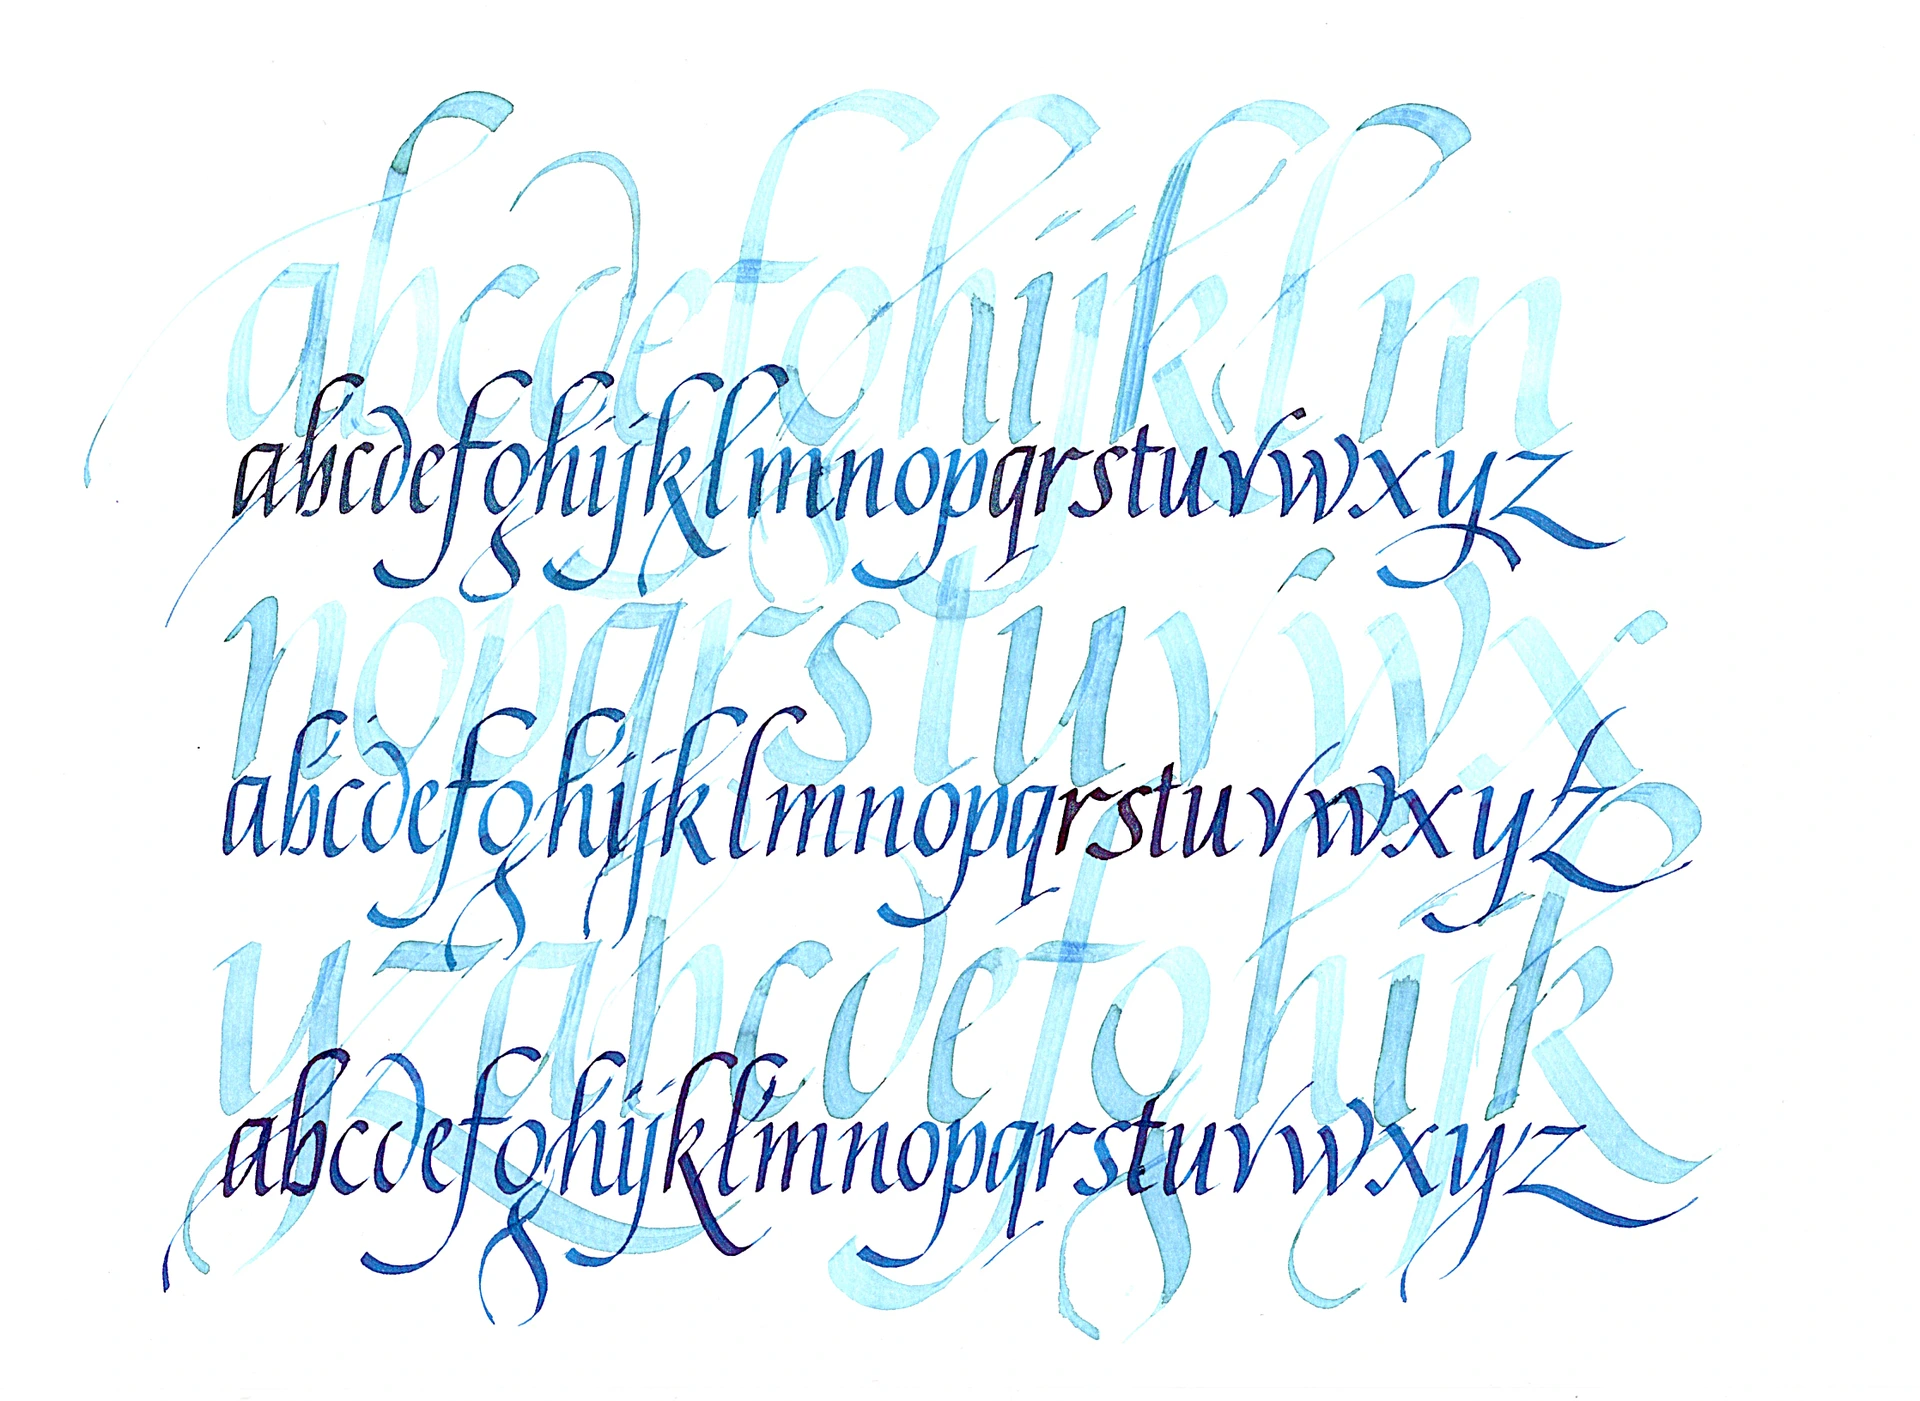 abcdefghijklm
abcdefghijklmnopqrstuvwxyz
nopqrstuvwx
abcdefghijklmnopqrstuvwxyz
yzabcdefghijk
abcdefghijklmnopqrstuvwxyz